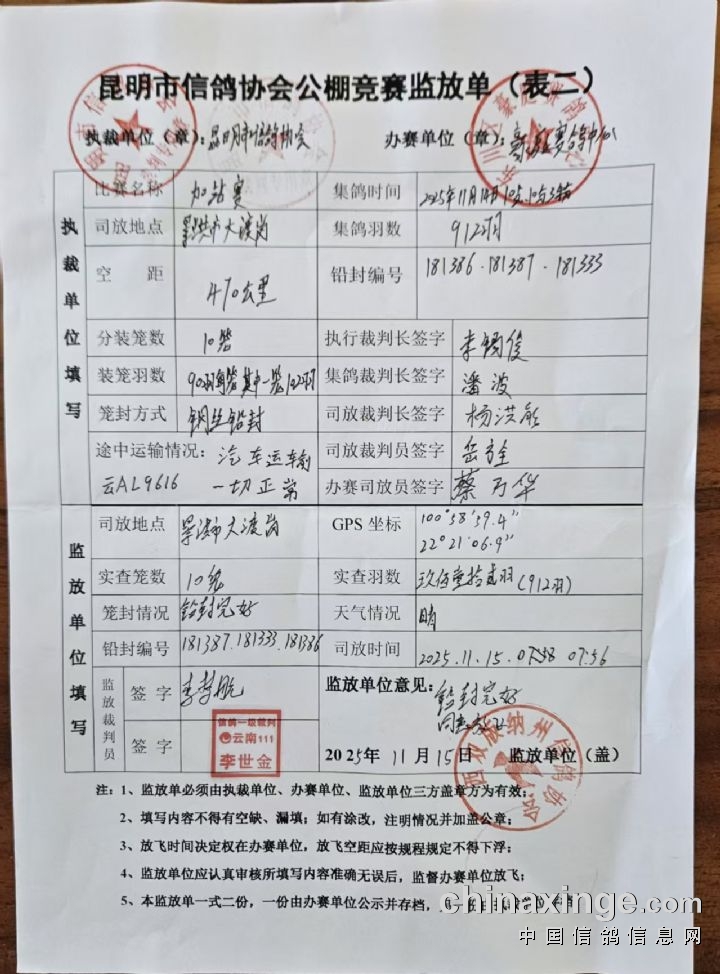 昆明市信鸽协会公棚竞赛监放单（表二）
执裁单位（章）：昆明市信鸽协会 办赛单位（章）：
执裁单位填写
比赛名称 加站赛 集鸽时间 2025年11月14日
司放地点 景洪市大渡岗 集鸽羽数 912羽
空距 470公里 铅封编号 181386.181387.181333
分装笼数 10笼 执行裁判长签字 李锡俊
装笼羽数 90羽每笼其中一笼102羽 集鸽裁判长签字 潘波
笼封方式 钢丝铅封 司放裁判长签字 杨洪
途中运输情况：汽车运输 司放裁判员签字 岳
云AL9616 一切正常 办赛司放员签字 蔡乃华
监放单位填写
司放地点 景洪市大渡岗 GPS坐标 100°58'59.4"
22°21'06.9"
实查笼数 10笼 实查羽数 玖佰壹拾贰羽（912羽）
笼封情况 铅封完好 天气情况 晴
铅封编号 181387.181333.181386 司放时间 2025.11.15.07:58 07:56
监放裁判员
签字 李 航 监放单位意见：铅封完好
签字 信鸽一级裁判 云南111 李世金
2025年11月15日 监放单位（盖）
西双版纳州信鸽协会
注：1、监放单必须由执裁单位、办赛单位、监放单位三方盖章方为有效；
2、填写内容不得有空缺、漏填；如有涂改，注明情况并加盖公章；
3、放飞时间决定权在办赛单位，放飞空距应按规程规定不得下浮；
4、监放单位应认真审核所填写内容准确无误后，监督办赛单位放飞；
5、本监放单一式二份，一份由办赛单位公示并存档，
chinaxinge.com
中国信鸽信息网